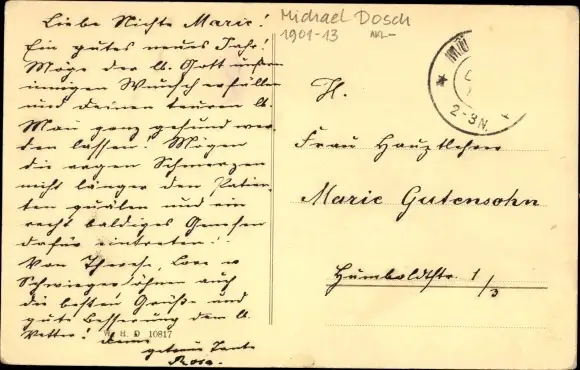 Liebe Nichte Marie!
Ein gutes neues Jahr!
Möge der lb. Gott unsern
innigen Wunsch erfüllen
und deinen teuren lb.
Man ganz gesund wer-
den lassen! Mögen
die argen Schmerzen
nicht länger den Patien-
ten quälen und ein
recht baldiges Genesen
dafür eintreten!
Von Therese, u
Schwiegersöhnen auch
die besten Grüße und
gute Besserung dem lb.
Vetter! Deine
getreue Tante
Rosa.
W. H. D. 10817
Michael Dosch
1901-13
MÜ
2-3N.
H.
Frau Hauptlehrer
Marie Gutensohn
Humboldtstr. 1/3